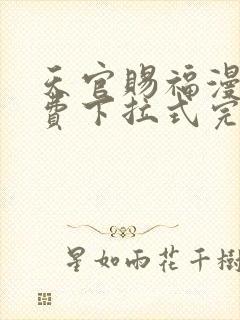 天官賜福漫
費下拉式完
星如雨花千樹